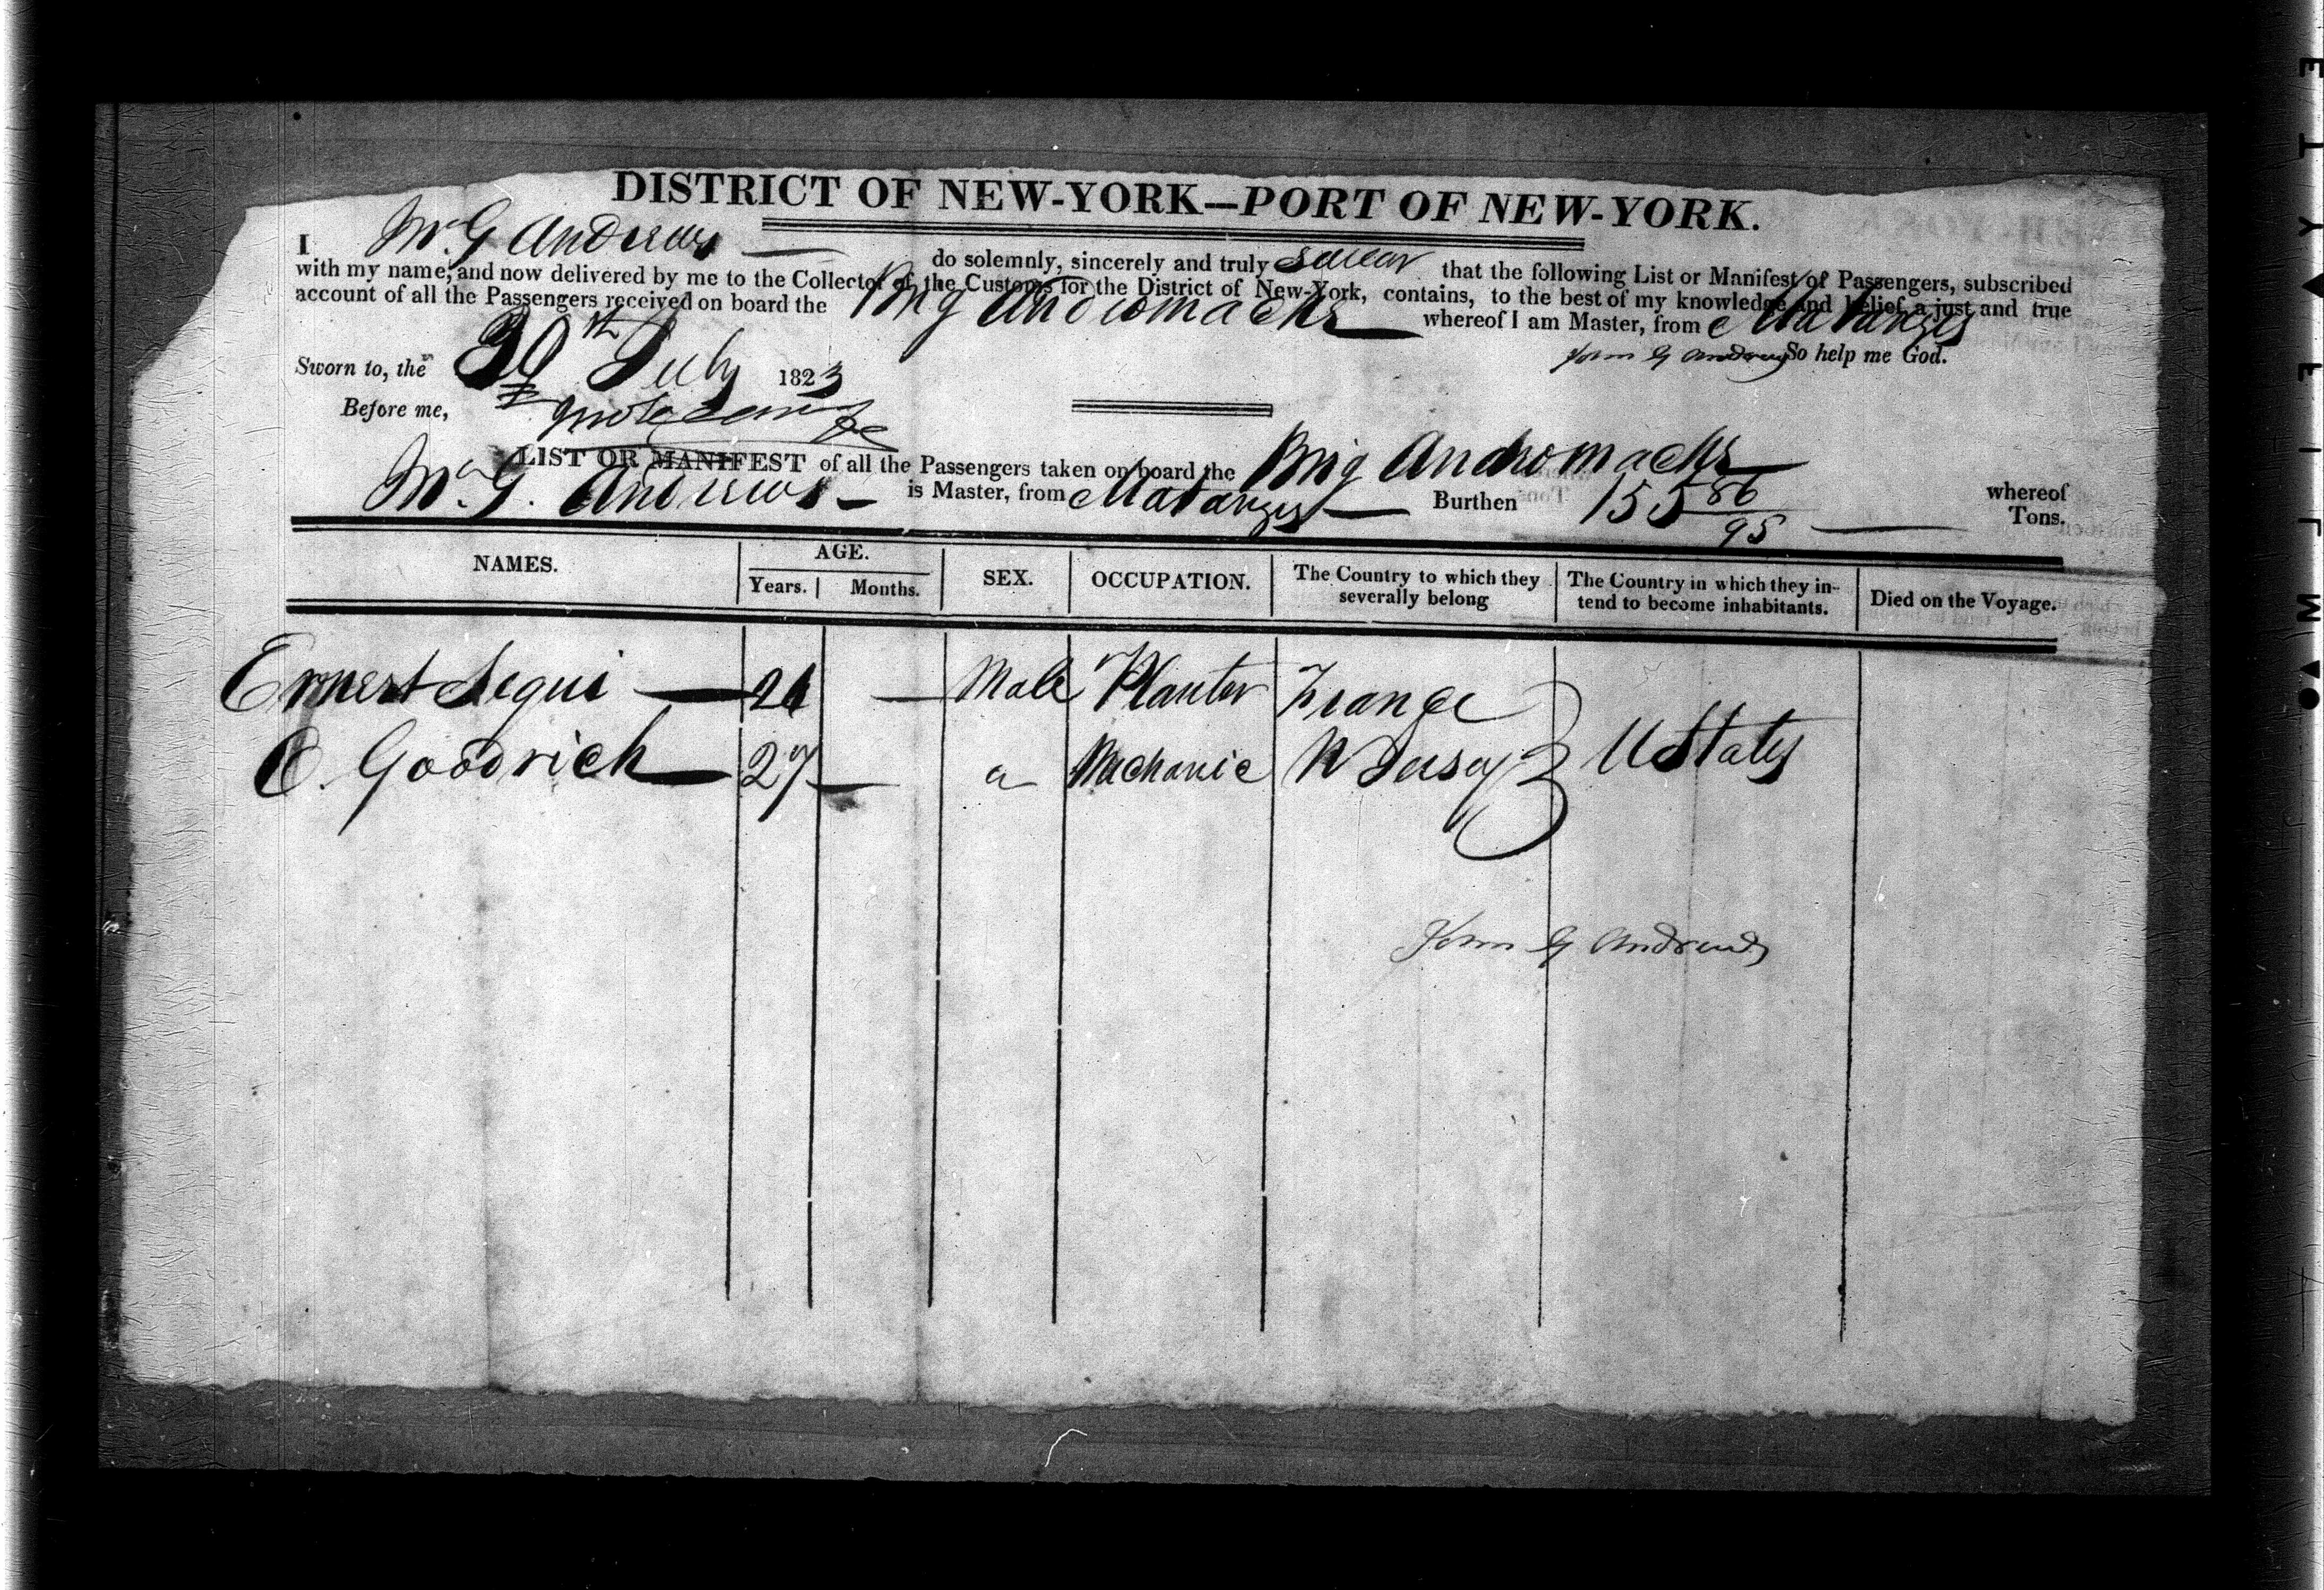 DISTRICT OF NEW-YORK—PORT OF NEW-YORK.
I Mr G Andrews — do solemnly, sincerely and truly swear that the following List or Manifest of Passengers, subscribed
with my name, and now delivered by me to the Collector of the Customs for the District of New-York, contains, to the best of my knowledge and belief, a just and true
account of all the Passengers received on board the Brig Andromache — whereof I am Master, from Matanzas
John G Andrews So help me God.
Sworn to, the 30th July 1823
Before me,
LIST OR MANIFEST of all the Passengers taken on board the Brig Andromache — whereof
Mr G. Andrews — is Master, from Matanzas — Burthen 155 86/95 — Tons.
NAMES. AGE. Years. Months. SEX. OCCUPATION. The Country to which they severally belong The Country in which they intend to become inhabitants. Died on the Voyage.
Ernest Sequi — 26 — Male Planter France
C. Goodrich — 27 — " Mechanic N Jersey } U States
John G Andrews